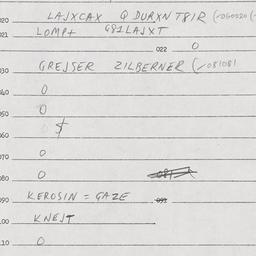 020 LAJXCAX Q DURXN T81R (
021 LOMP+ G81LAJXT
022 0
030 GREJSER ZILBERNER (✓081081
040 0
050 0
060 $
070 0
080 0
090 KEROSIN = GAZE 099
100 KNEJT
110 0